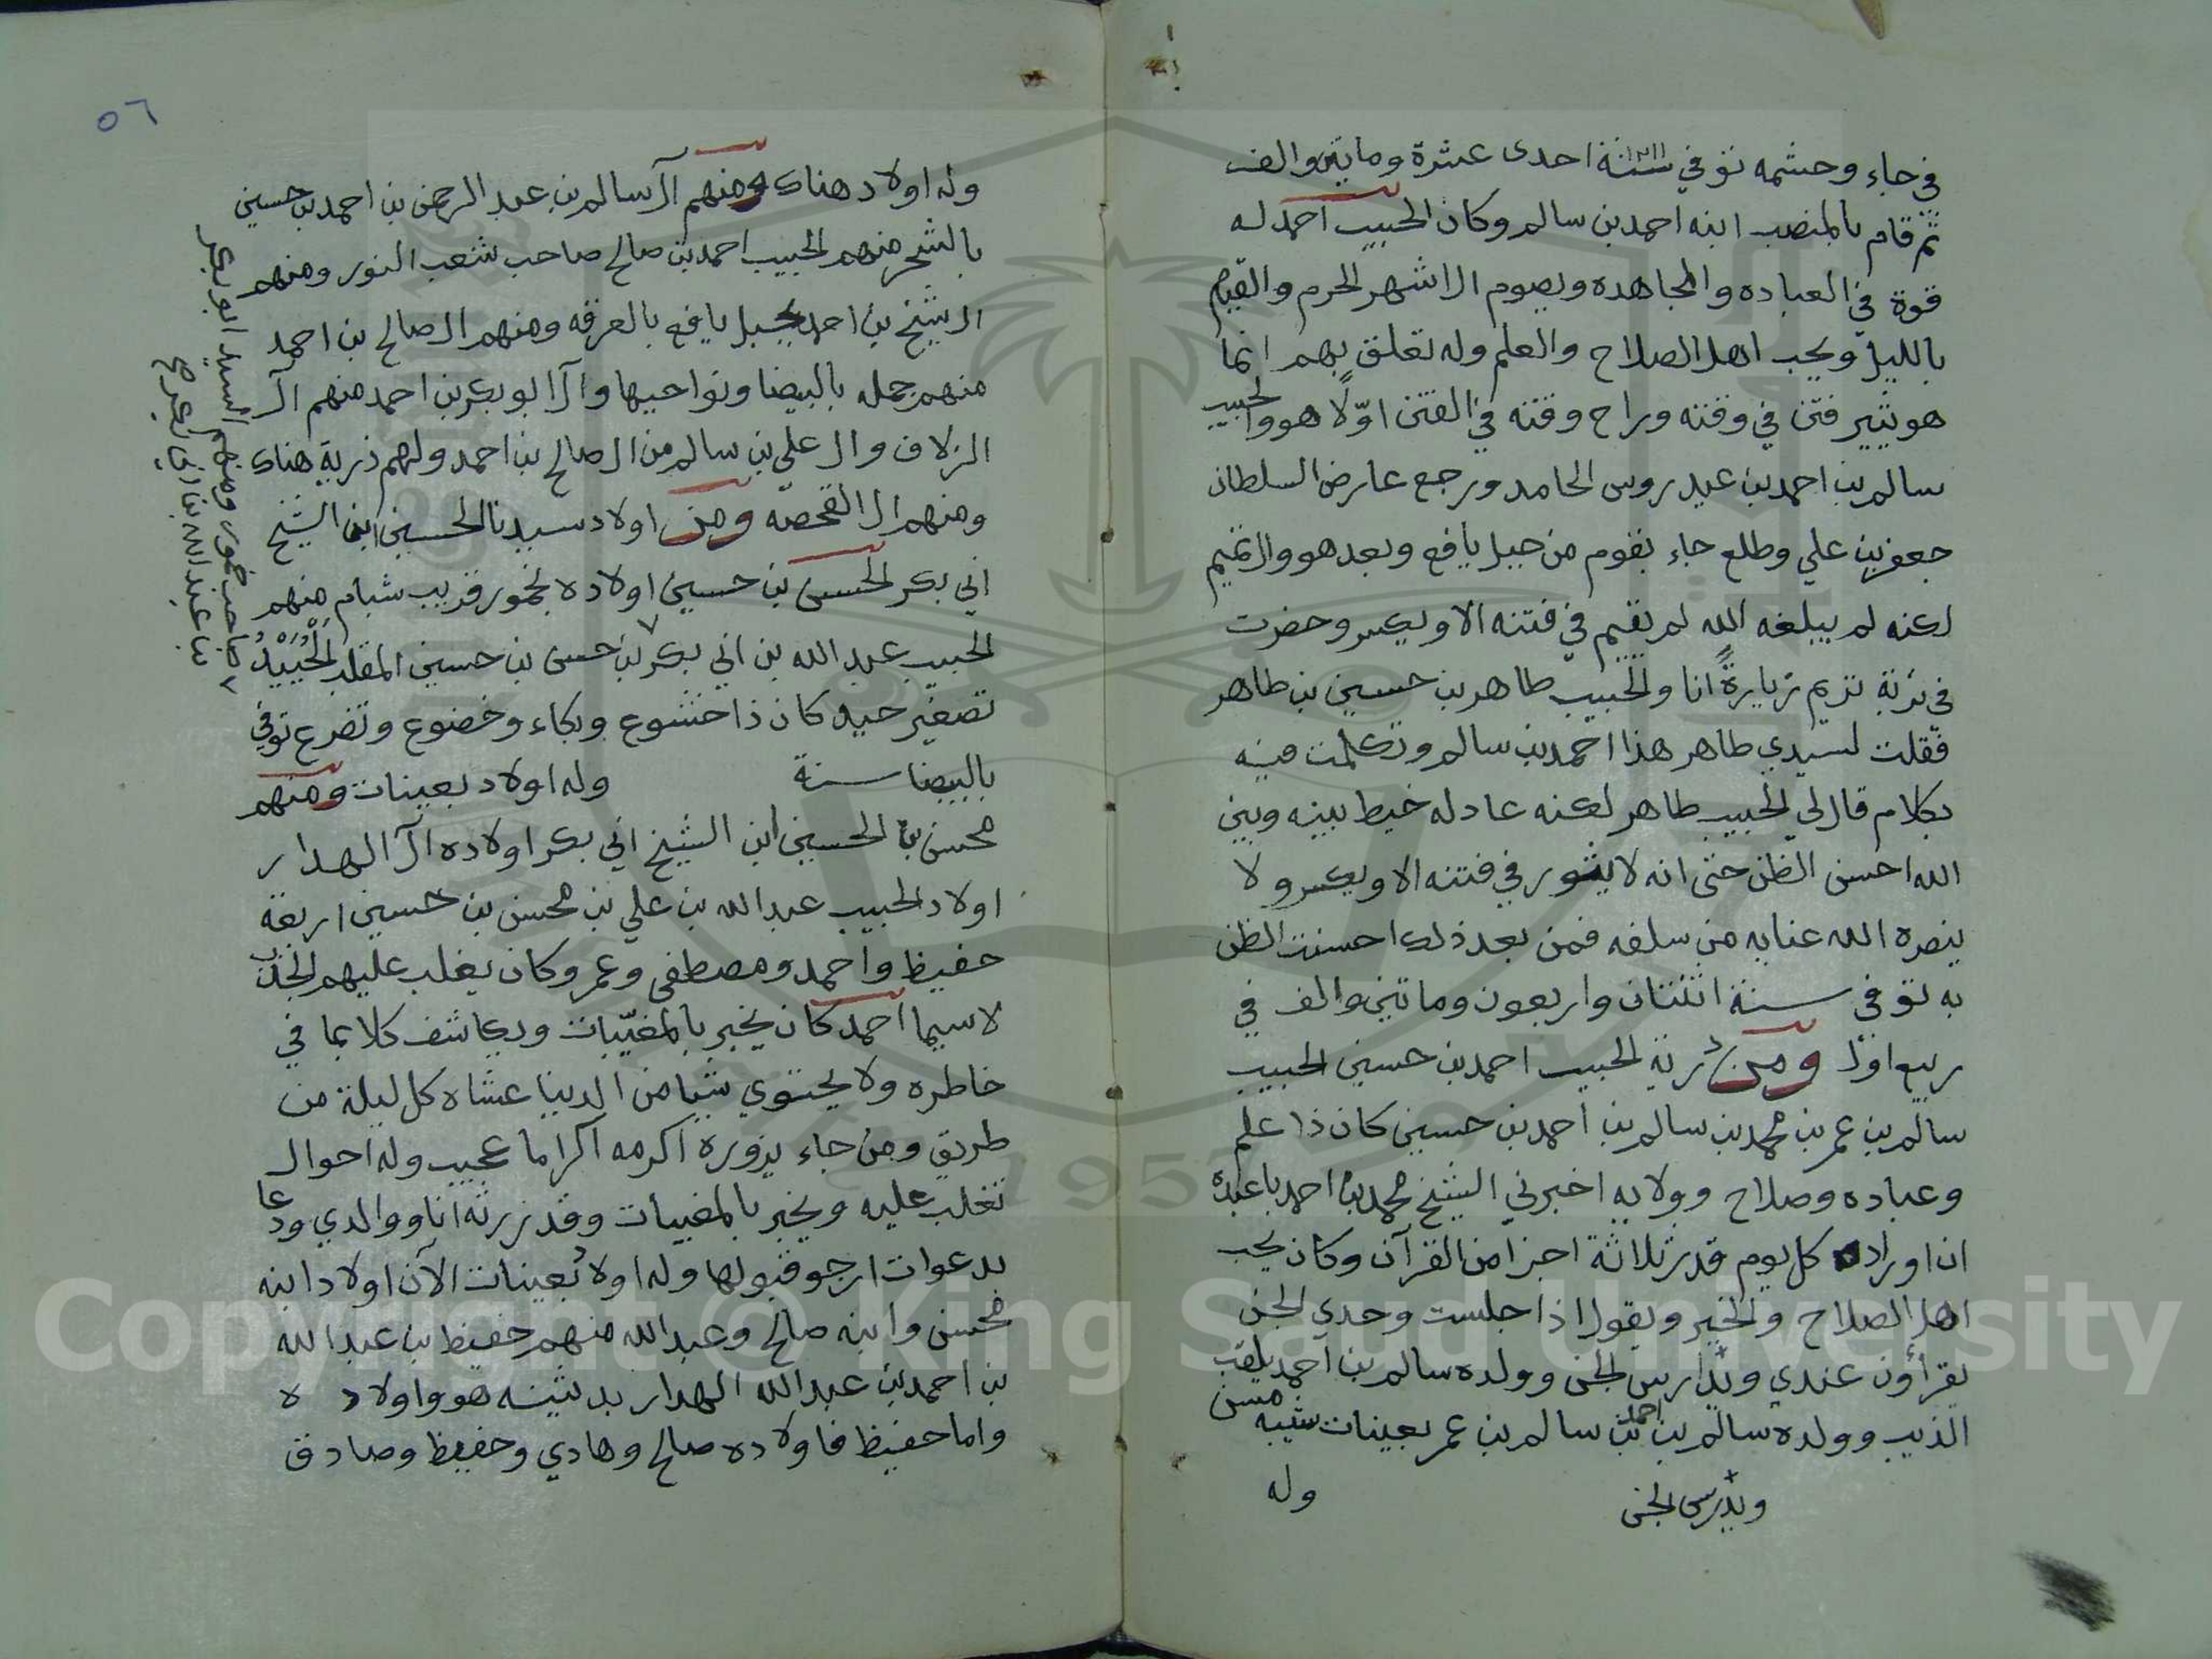 في جاء وحشمه توفي سنة ١٢١١ احدى عشرة ومايتين والف
ثم قام بالمنصب ابنه احمد بن سالم وكان الحبيب احمد له
قوة في العباده والمجاهده ويصوم الاشهر الحرم والقيام
بالليل ويحب اهل الصلاح والعلم وله تعلق بهم انما
هو يثير فتن في وقته وراح وقته في الفتن اوّلًا هو والحبيب
سالم بن احمد بن عيدروس الحامد ورجع عارض السلطان
جعفر بن علي وطلع جاء بقوم من جبل يافع وبعد هو وال تميم
لكنه لم يبلغه الله لم يقيم في فتنه الا ويكسر وحضرت
في تربة تريم زيارةً انا والحبيب طاهر بن حسين بن طاهر
فقلت لسيدي طاهر هذا احمد بن سالم وتكلمت فيه
بكلام قال لي الحبيب طاهر لكنه عادله خيط بينه وبين
الله احسن الظن حتى انه لا يثور في فتنه الا ويكسر ولا
ينصره الله عنايه من سلفه فمن بعد ذلك احسنت الظن
به توفي سنة اثنتان واربعون وماتين والف في
ربيع اول ومن ذرية الحبيب احمد بن حسين الحبيب
سالم بن عمر بن محمد بن سالم بن احمد بن حسين كان ذا علم
وعباده وصلاح وولايه اخبرني الشيخ محمد بن احمد باعبده
ان اوراده كل يوم قدر ثلاثة اجزا من القرآن وكان يحب
اهل الصلاح والخير ويقول اذا جلست وحدي الجن
يقرأون عندي ويدارس الجن وولده سالم بن احمد يلقب
الذيب وولده سالم بن احمد بن سالم بن عمر بعينات شيبه مسن
ويدرس الجن
وله
٥٦
وله اولاد هناك ومنهم آل سالم بن عبد الرحمن بن احمد بن حسين
بالشحر منهم الحبيب احمد بن صالح صاحب شعب النور ومنهم
ال شيخ بن احمد بجبل يافع بالعرقه ومنهم ال صالح بن احمد
منهم جمله بالبيضا ونواحيها وآل ابو بكر بن احمد منهم آل
الزلاف وال علي بن سالم من ال صالح بن احمد ولهم ذرية هناك
ومنهم ال القحصه ومن اولاد سيدنا الحسين ابن الشيخ
ابي بكر الحسن بن حسين اولاده بخمور قريب شبام منهم
الحبيب عبد الله بن ابي بكر بن حسن بن حسين المقلب الحُيَيْدْ
تصغير حيد كان ذا خشوع وبكاء وخضوع وتضرع توفي
بالبيضا سنة وله اولاد بعينات ومنهم
محسن بن الحسين ابن الشيخ ابي بكر اولاده آل الهدار
اولاد الحبيب عبد الله بن علي بن محسن بن حسين اربعة
حفيظ واحمد ومصطفى وعمر وكان يغلب عليهم الجذب
لاسيما احمد كان يخبر بالمغيّبات ويكاشف كلا بما في
خاطره ولا يحتوي شيا من الدنيا عشاه كل ليلة من
طريق ومن جاء يزوره اكرمه اكراما عجيب وله احوال
تغلب عليه ويخبر بالمغيبات وقد زرته انا ووالدي ودعا
بدعوات ارجو قبولها وله اولاد بعينات الآن اولاد ابنه
محسن وابنه صالح وعبد الله منهم حفيظ بن عبد الله
بن احمد بن عبد الله الهدار بدثينه هو واولاده
واما حفيظ فاولاده صالح وهادي وحفيظ وصادق
صاحب خمور ومنهم السيد ابو بكر
بن عبد الله
Copyright © King Saud University
1957